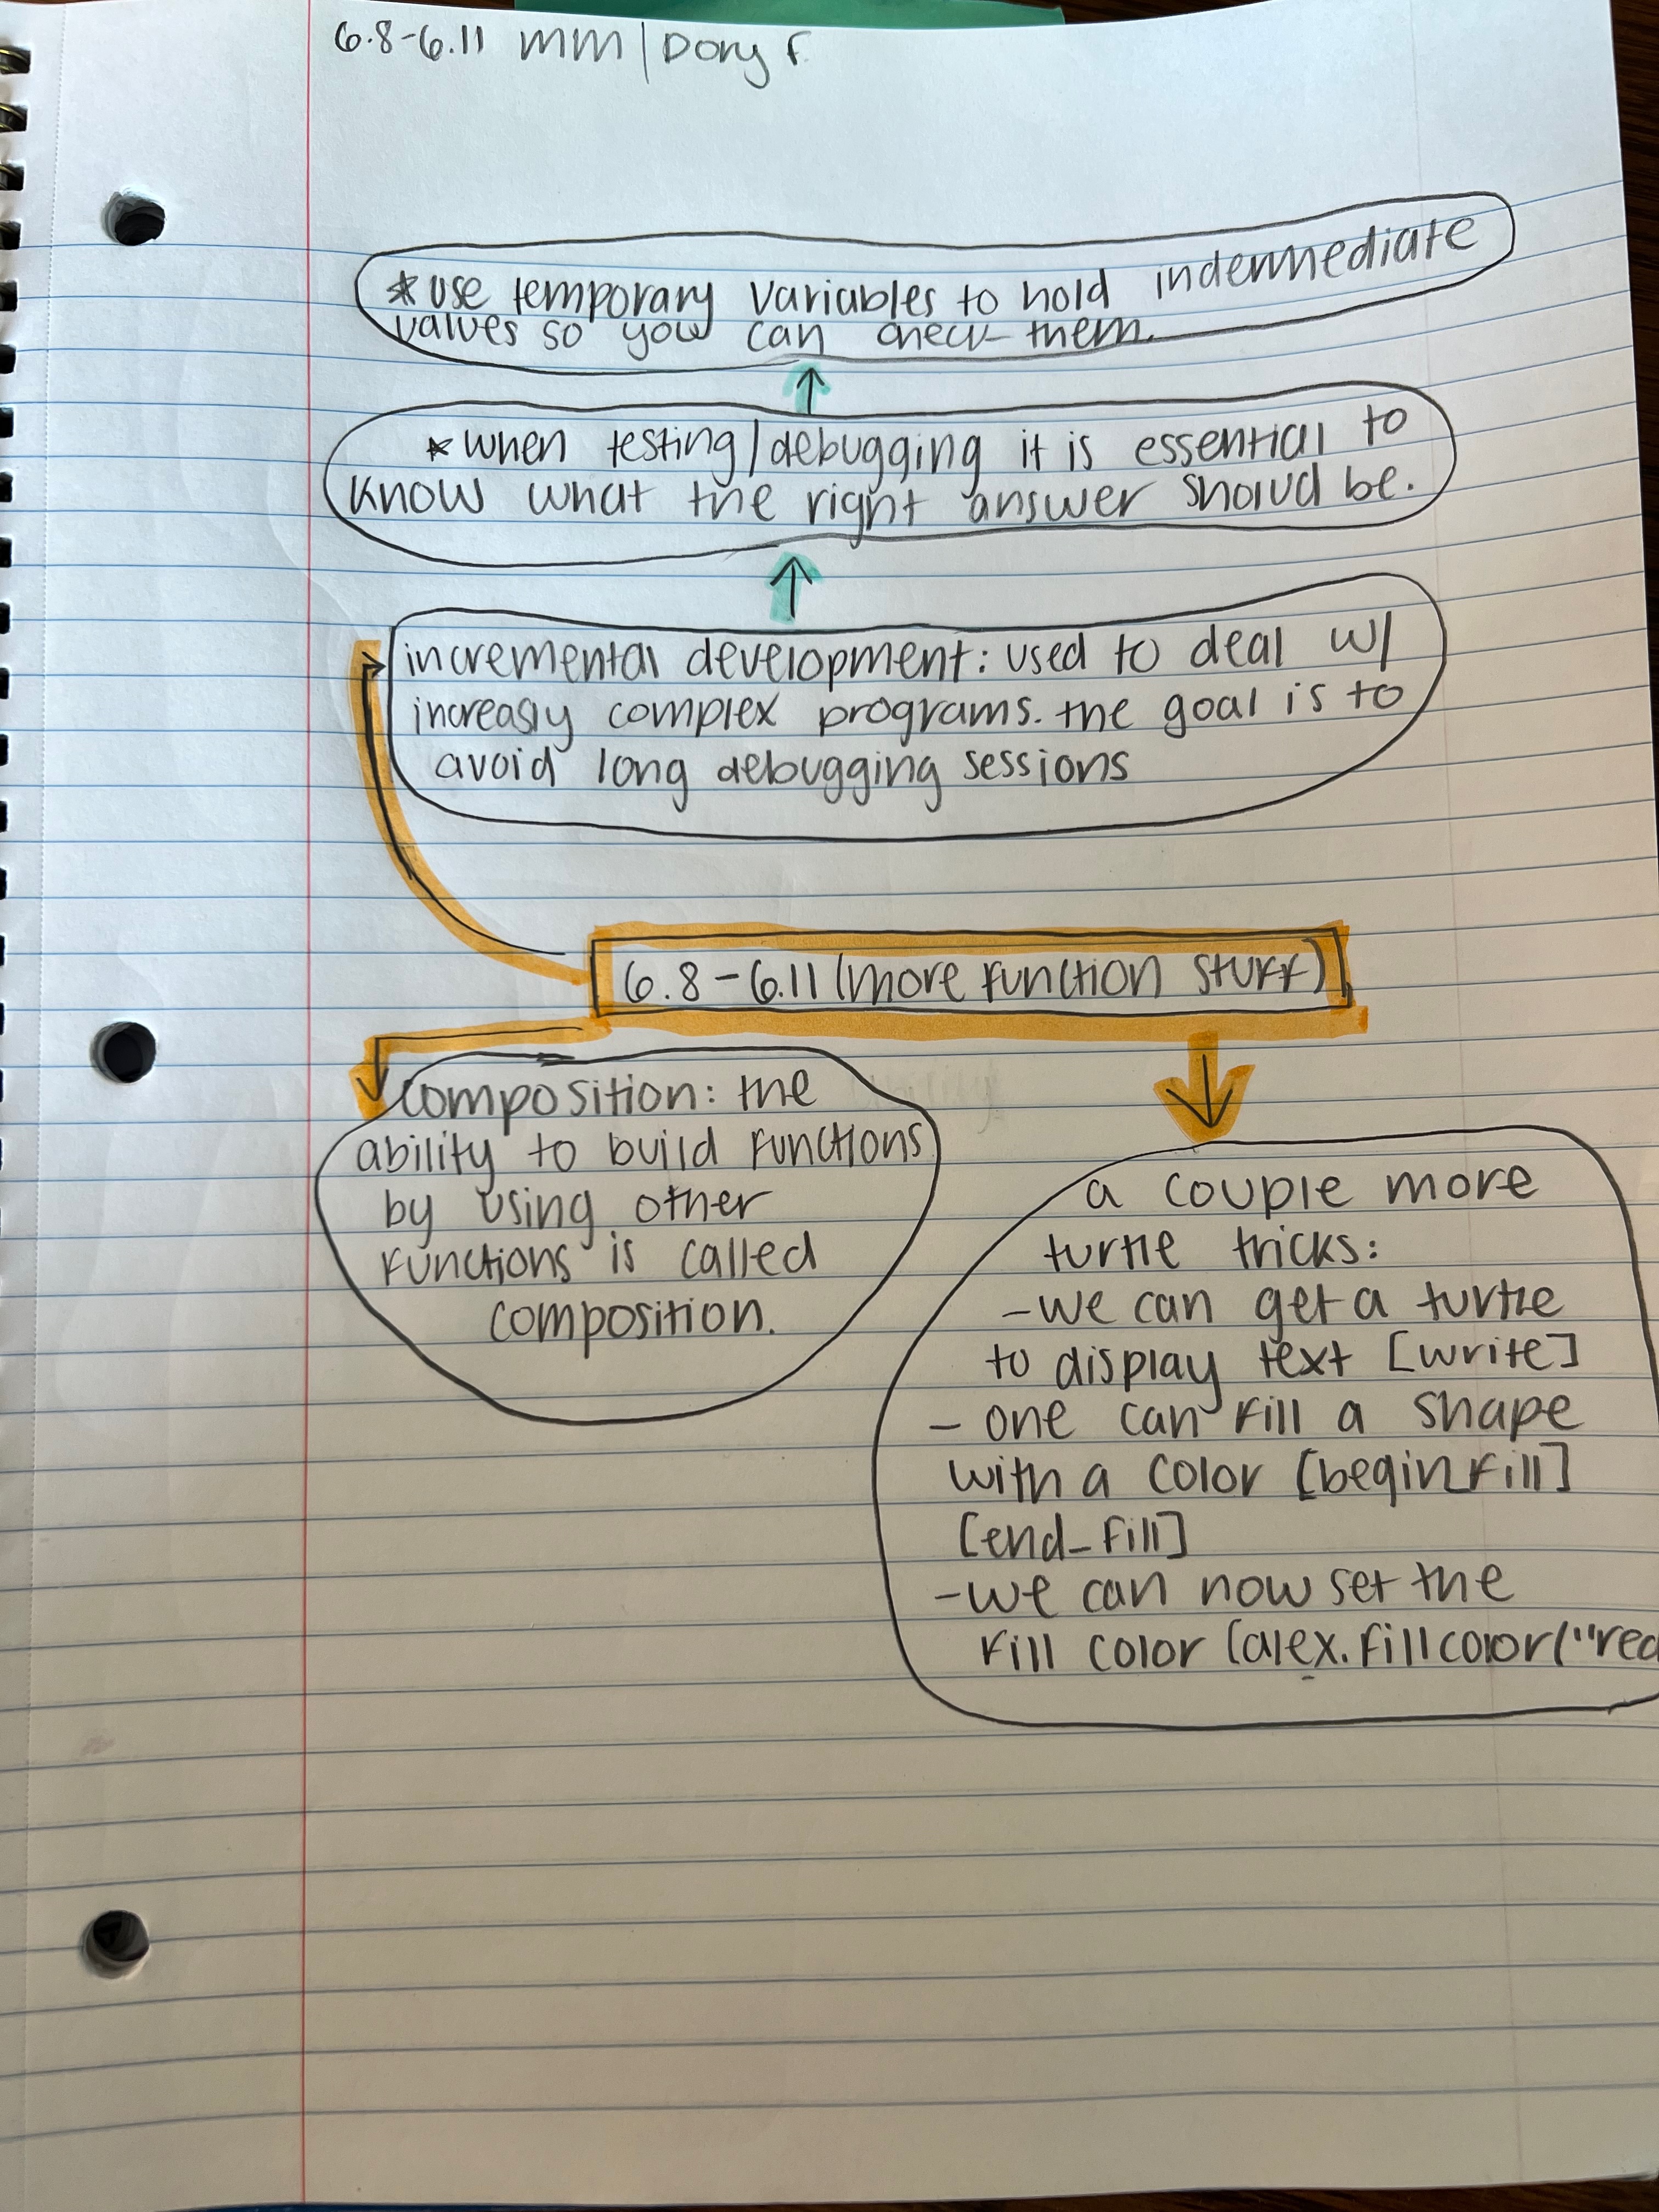 6.8-6.11 MM | Dory F.
*use temporary variables to hold indermediate
values so you can check them.
*when testing/debugging it is essential to
know what the right answer should be.
incremental development: used to deal w/
increasly complex programs. the goal is to
avoid long debugging sessions
6.8-6.11 (more function stuff)
composition: the
ability to build functions
by using other
functions is called
composition.
a couple more
turtle tricks:
-we can get a turtle
to display text [write]
- one can fill a shape
with a color [begin_fill]
[end_fill]
-we can now set the
fill color [alex.fillcolor("red